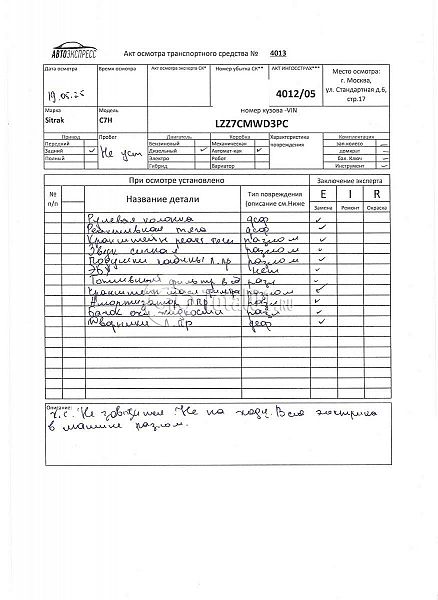 АВТОЭКСПРЕСС
Акт осмотра транспортного средства № 4013
Дата осмотра Время осмотра Акт осмотра эксперта СК* Номер убытка СК** АКТ ИНГОССТРАХ*** Место осмотра:
г. Москва,
ул. Стандартная д.6,
стр.17
19.05.25 4012/05
Марка Модель номер кузова -VIN
Sitrak C7H LZZ7CMWD3PC
Привод Пробег Двигатель Коробка Характеристика повреждения Комплектация
Передний Бензиновый Механическая зап.колесо
Задний ✓ Не уст Дизельный Автомат-кая ✓ домкрат
Полный Электро Робот бал. Ключ
Гибрид Вариатор Инструмент
При осмотре установлено Заключение эксперта
№ п/п Название детали Тип повреждения (описание см.Ниже E I R
Замена Ремонт Окраска
Рулевая колонка деф ✓
Реактивная тяга деф ✓
Кронштейн реакт тяги разлом ✓
Звук сигнал разлом ✓
Подушки кабины л.пр разлом ✓
ЭБУ ✓
Топливный фильтр разл ✓
Кронштейн масл фильтра разлом ✓
Амортизатор пр разл ✓
Бачок жидкости разл ✓
л.пр деф ✓
Описание:
т.с. Не заводится Не на ходу. Вся электрика
в машине разлом.